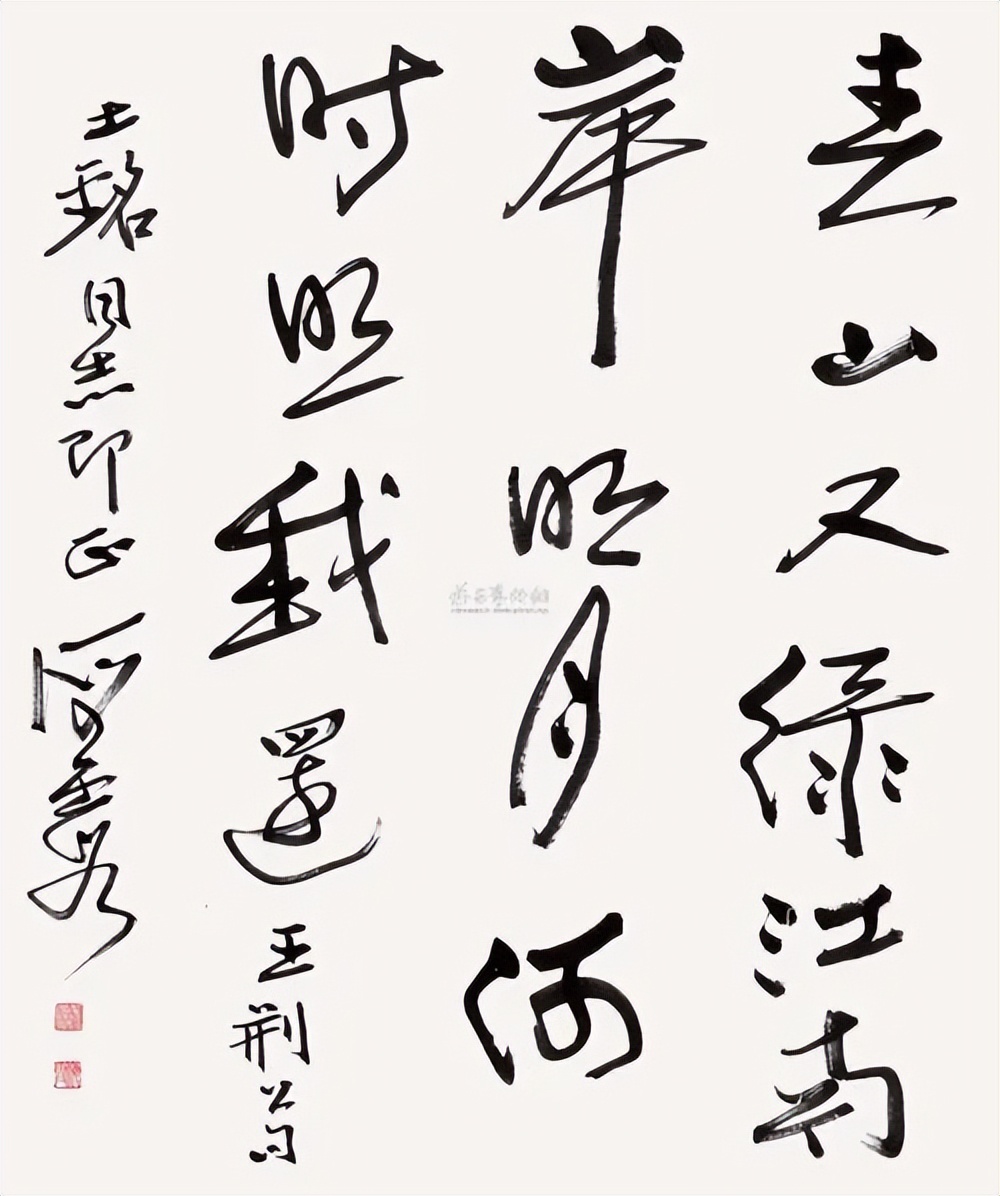 春山又绿江南
岸明月何
时照我还王荆公句
士铭同志即正